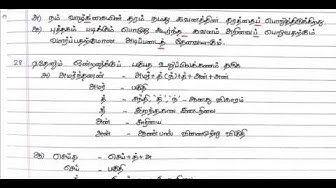 அ) நம் வாழ்க்கையின் தரம் நமது கவனத்தின் தரத்தைப் பொறுத்திருக்கிறது.
ஆ) புத்தகம் படிக்கும் பொழுது கூர்ந்த கவனம் அறிவைப் பெறுவதற்கும்
வளர்ப்பதற்குமான அடிப்படைத் தேவையாகும்.
29 ஏதேனும் ஒன்றனுக்குப் பகுபத உறுப்பிலக்கணம் தருக
அ) அமர்ந்தனன் - அமர்+த்(ந்)+த்+அன்+அன்
அமர் - பகுதி
த் - சந்தி, 'த்', 'ந்' - ஆனது விகாரம்
த் - இறந்தகால இடைநிலை
அன் - சாரியை
அன் - ஆண்பால் வினைமுற்று விகுதி
ஆ) செய்த - செய்+த்+அ
செய் - பகுதி